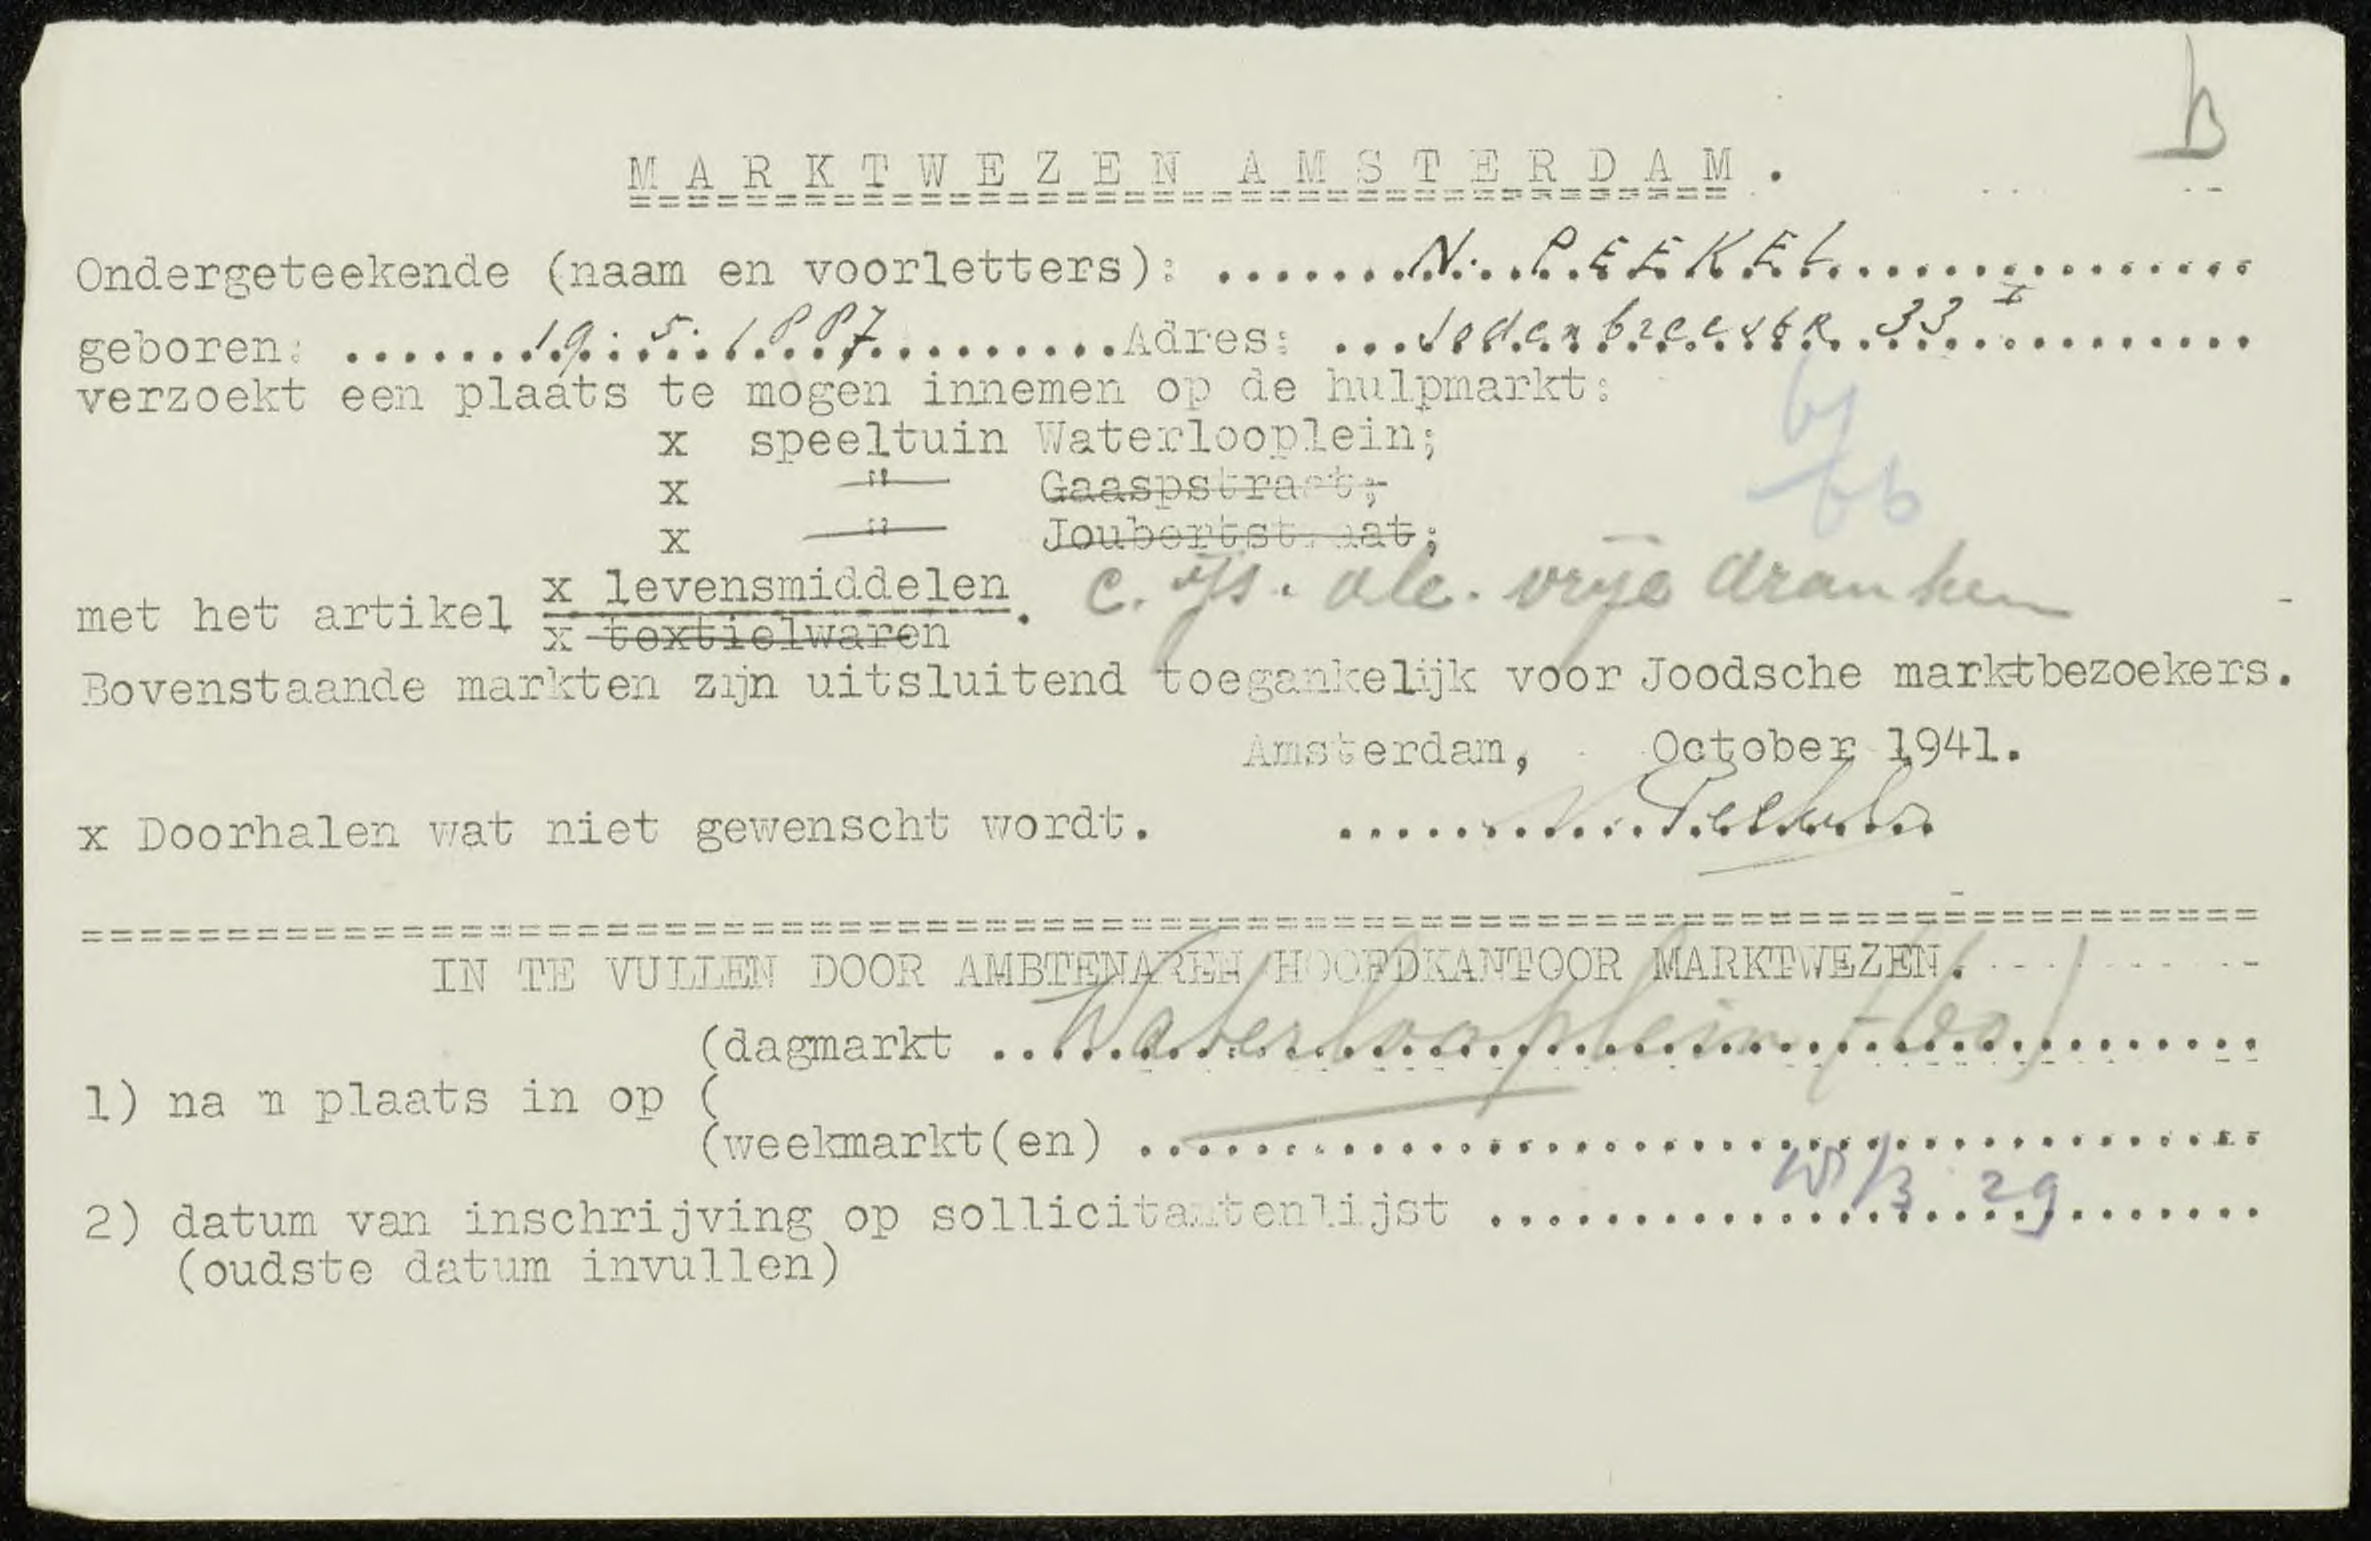 b
MARKTWEZEN AMSTERDAM.
Ondergeteekende (naam en voorletters): N. PEEKEL
geboren: 19.5.1887 Adres: Jodenbreestr 33 I
verzoekt een plaats te mogen innemen op de hulpmarkt:
x speeltuin Waterlooplein;
x " Gaaspstraat;
x " Joubertstraat;
met het artikel x levensmiddelen
x textielwaren. c. ijs. alc. vrije dranken
Bovenstaande markten zijn uitsluitend toegankelijk voor Joodsche marktbezoekers.
Amsterdam, October 1941.
x Doorhalen wat niet gewenscht wordt. N. Peekel
IN TE VULLEN DOOR AMBTENAREN HOOFDKANTOOR MARKTWEZEN.
(dagmarkt Waterlooplein
1) na m plaats in op (
(weekmarkt(en)
2) datum van inschrijving op sollicitantenlijst 29
(oudste datum invullen)